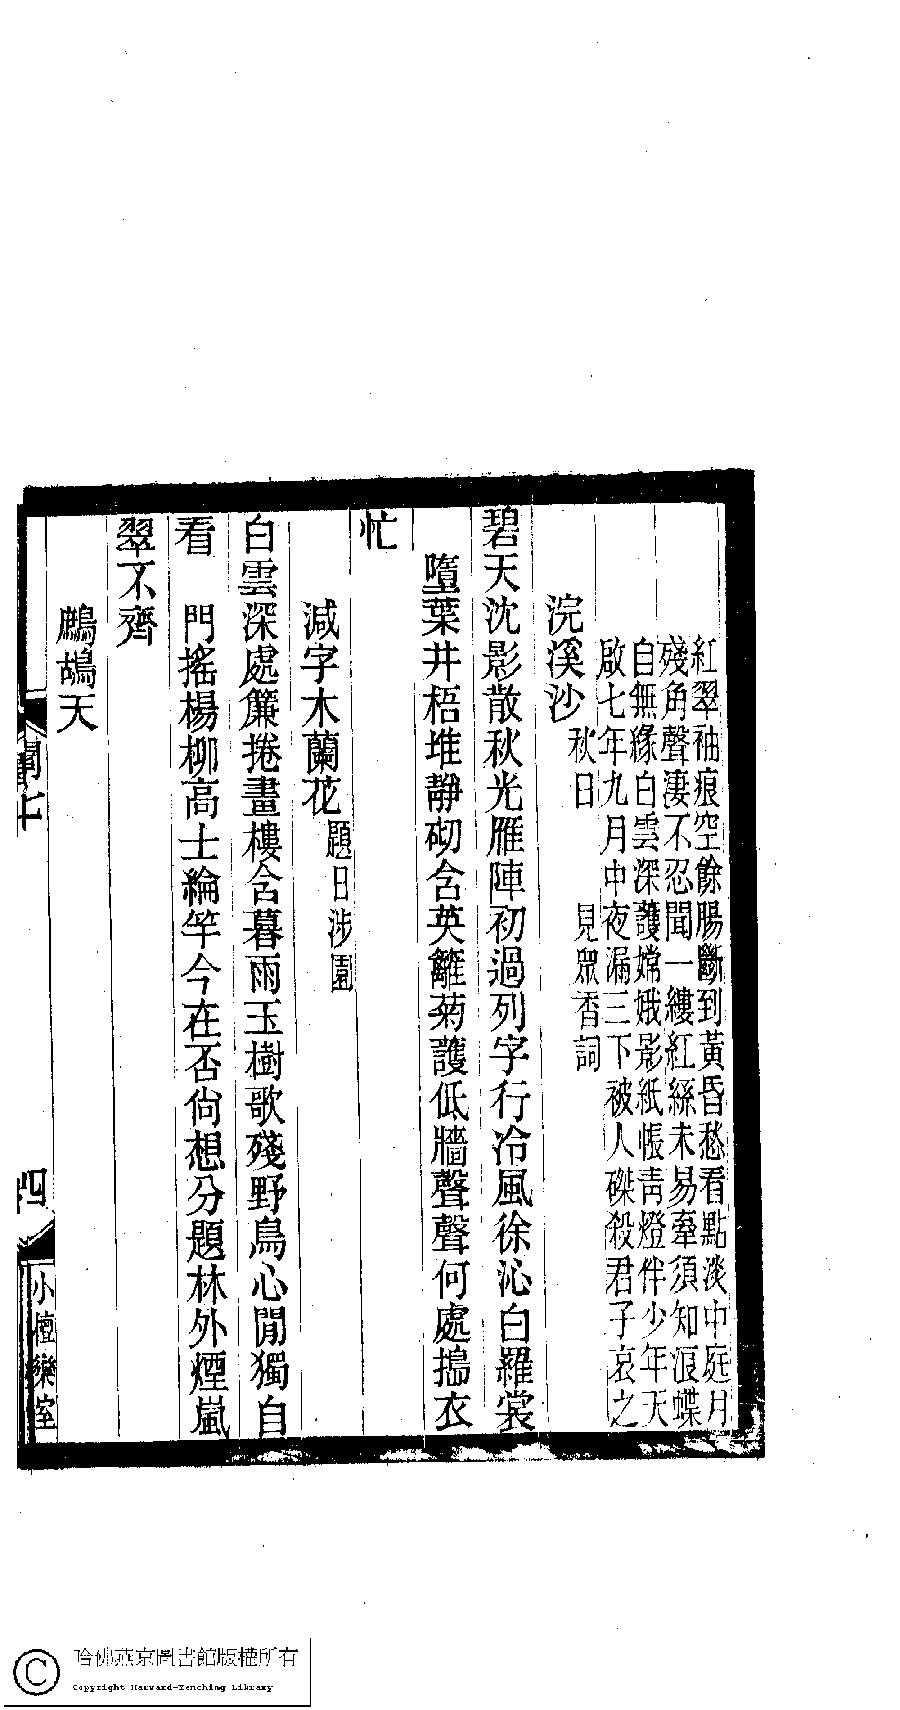 紅翠袖痕空餘腸斷到黃昏愁看點淡中庭月
殘角聲淒不忍聞一縷紅絲未易牽須知浪蝶
自無緣白雲深護嫦娥影紙帳青燈伴少年天
啟七年九月中夜漏三下被人磔殺君子哀之
浣溪沙 秋日 見眾香詞
碧天沈影散秋光雁陣初過列字行冷風徐沁白羅裳
墮葉井梧堆靜砌含英籬菊護低牆聲聲何處搗衣
忙
減字木蘭花 題日涉園
白雲深處簾捲畫樓含暮雨玉樹歌殘野鳥心閒獨自
看 門搖楊柳高士綸竿今在否尙想分題林外煙嵐
翠不齊
鷓鴣天
閨七
四
小檀欒室
哈佛燕京圖書館版權所有
Copyright Harvard-Yenching Library